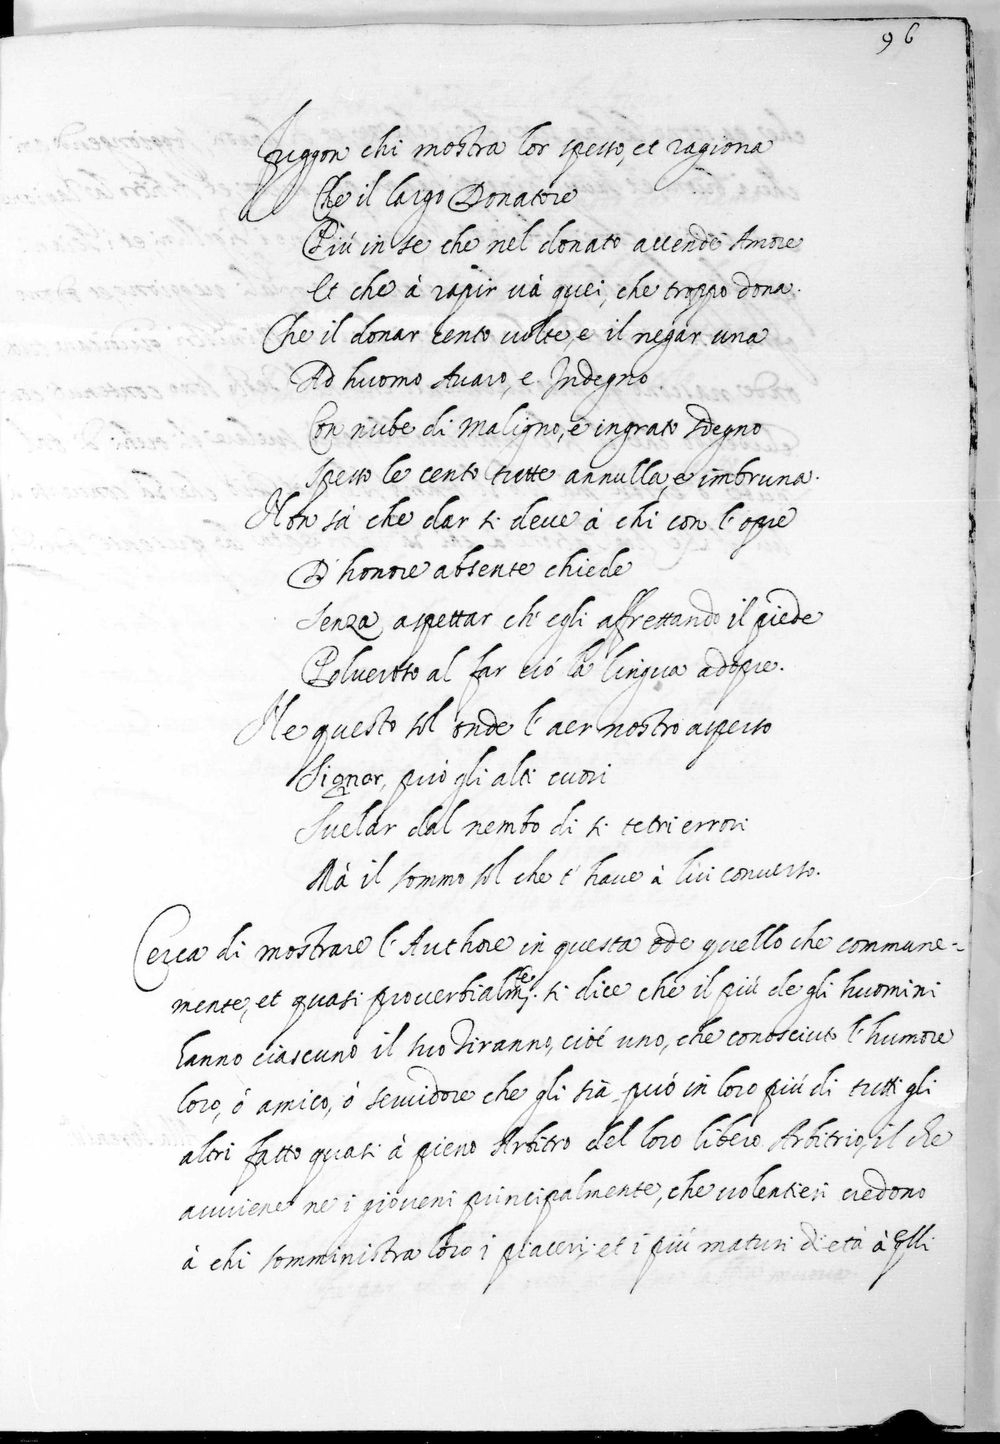 96
Fuggon chi mostra lor spesso, et ragiona
Che il largo Donatore
Più in se che nel donato accende Amore
Et che à rapir và quei, che troppo dona.
Che il donar cento volte, e il negar una
Ad huomo Avaro, e Indegno.
Con nube di maligno, e ingrato sdegno
spesso le cento tutte annulla, e imbruna.
Non sà che dar si deve à chi con l'opre
D'honore absente chiede
senza aspettar ch'egli affrettando il piede
Polveroso al far ciò la lingua adopre.
Ne questo sol onde l'aer nostro asperso
Signor, può gli alti cuori
Svelar dal nembo di si tetri errori
Mà il sommo sol che t'have à lui converso.
Cerca di mostrare l'Authore in questa ode quello che commune-
mente, et quasi proverbialmte. si dice che il più de gli huomini
hanno ciascuno il suo Tiranno, cioè uno, che conosciuto l'humore
loro, ò amico, ò servidore che gli sià, può in loro più di tutti gli
altri fatto quasi à pieno Arbitro del loro libero Arbitrio, il che
avviene ne i gioveni principalmente, che volentieri credono
à chi somministra loro i piaceri; et i più maturi d'età à qlli